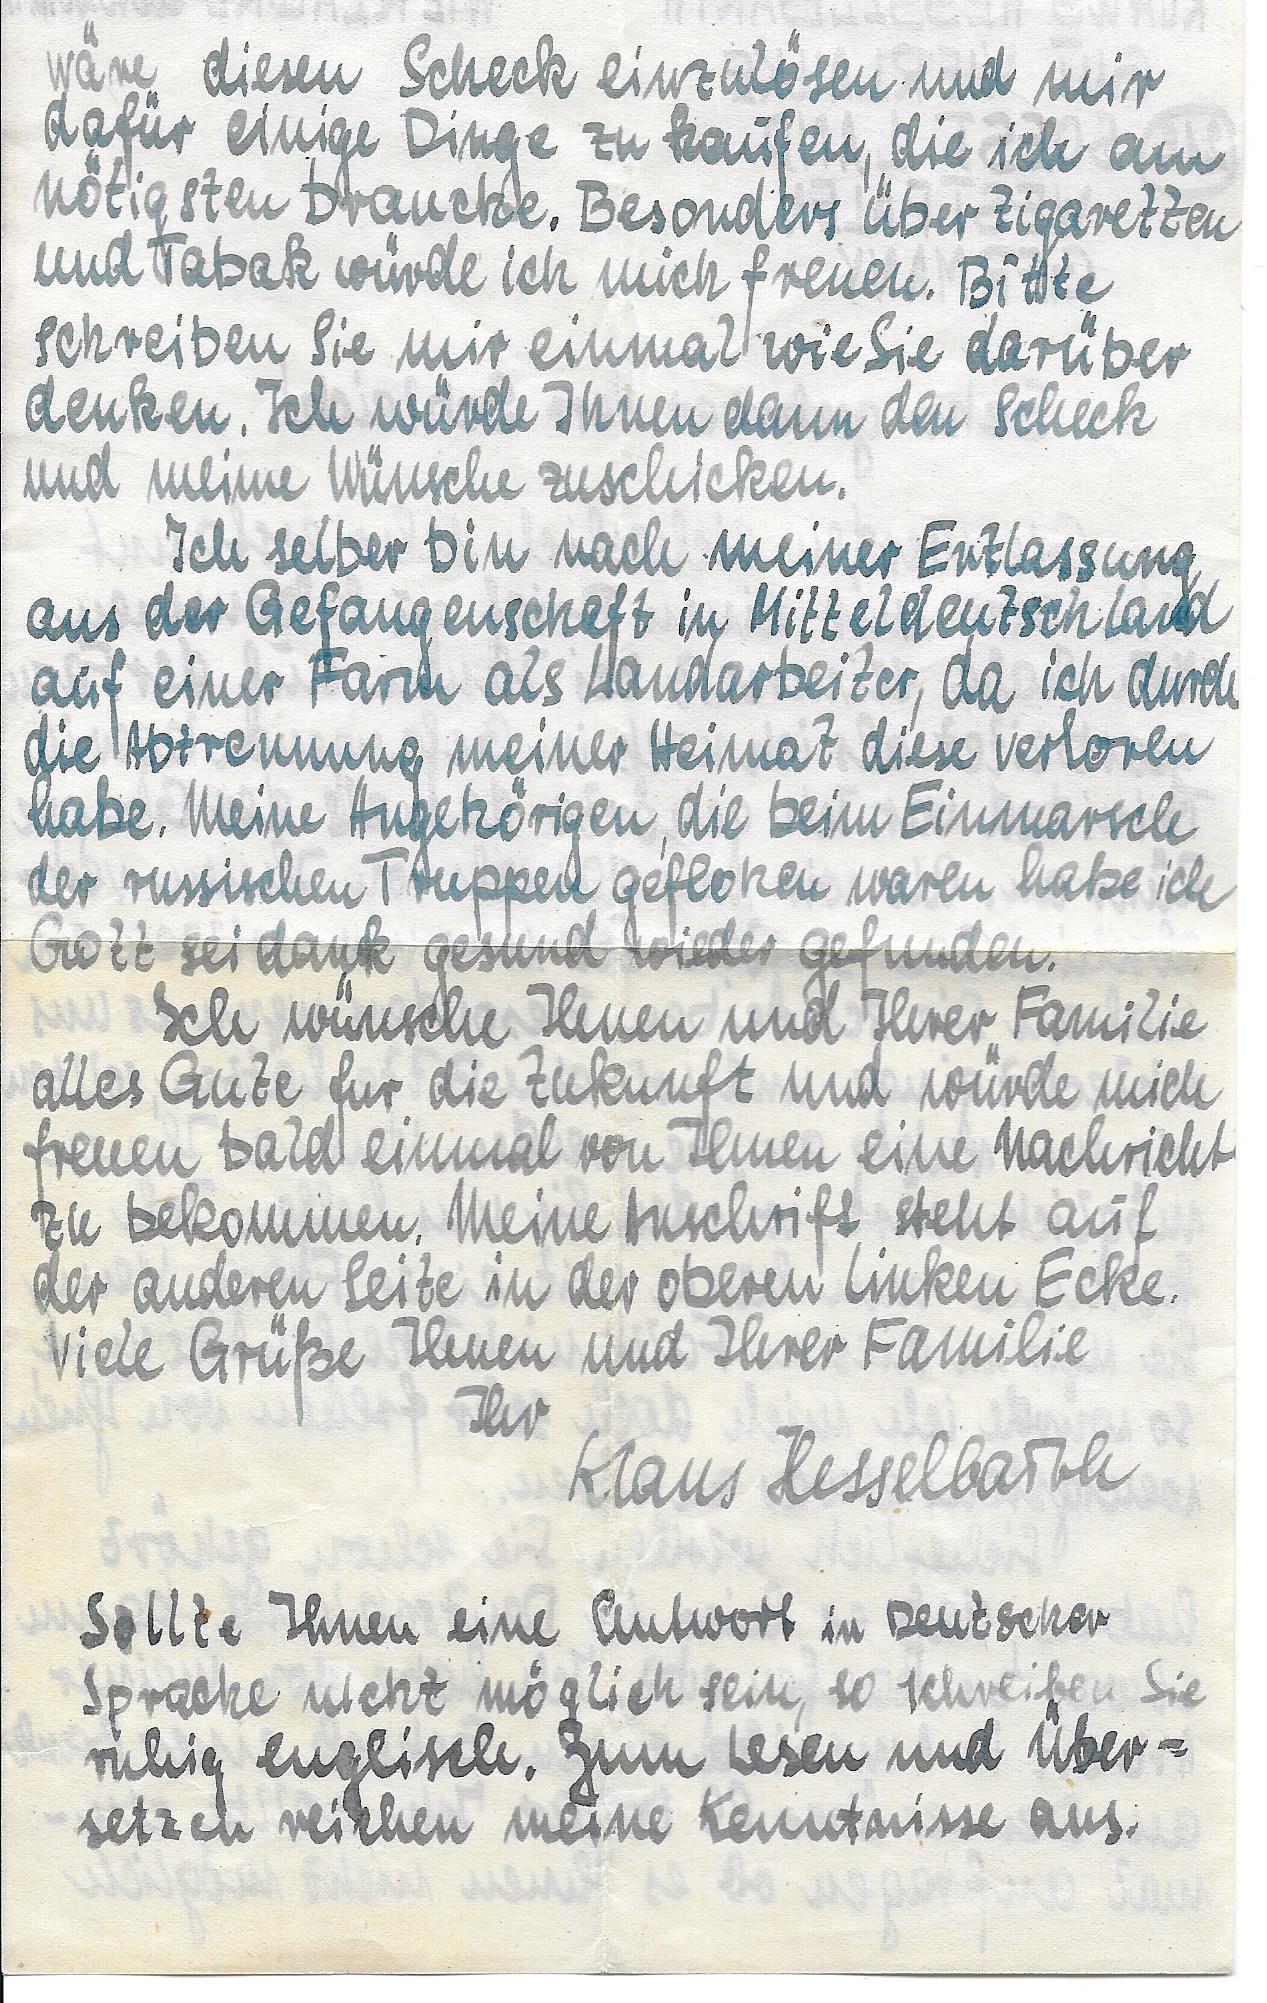 wäre diesen Scheck einzulösen und mir
dafür einige Dinge zu kaufen, die ich am
nötigsten brauche. Besonders über Zigaretten
und Tabak würde ich mich freuen. Bitte
schreiben Sie mir einmal wie Sie darüber
denken. Ich würde Ihnen dann den Scheck
und meine Wünsche zuschicken.
Ich selber bin nach meiner Entlassung
aus der Gefangenschaft in Mitteldeutschland
auf einer Farm als Landarbeiter, da ich durch
die Abtrennung meiner Heimat diese verloren
habe. Meine Angehörigen, die beim Einmarsch
der russischen Truppen geflohen waren habe ich
Gott sei dank gesund wieder gefunden.
Ich wünsche Ihnen und Ihrer Familie
alles Gute fur die Zukunft und würde mich
freuen bald einmal von Ihnen eine Nachricht
zu bekommen. Meine Anschrift steht auf
der anderen Seite in der oberen linken Ecke.
Viele Grüße Ihnen und Ihrer Familie
Ihr
Klaus Hesselbarth
Sollte Ihnen eine Antwort in Deutscher
Sprache nicht möglich sein, so schreiben Sie
ruhig englisch. Zum Lesen und Über=
setzen reichen meine Kenntnisse aus.